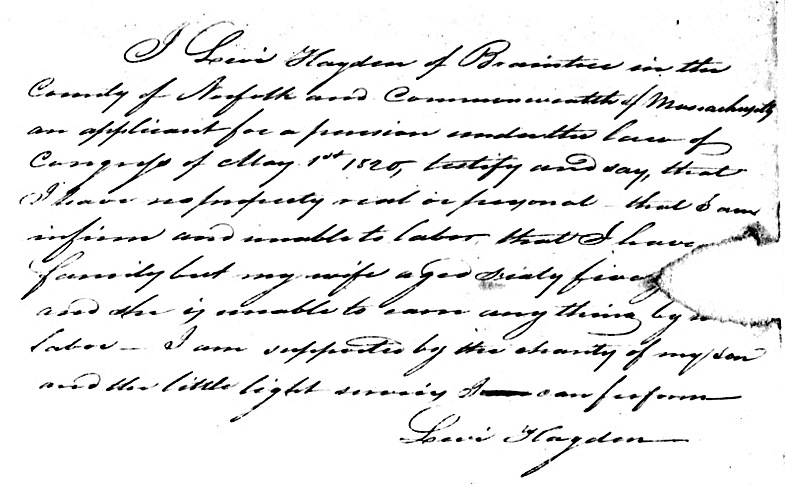 I Levi Hayden of Braintree in the
County of Norfolk and Commonwealth of Massachusetts
an applicant for a pension under the law of
Congress of May 1st 1820, testify and say, that
I have no property real or personal - that I am
infirm and unable to labor, that I have
family but my wife aged sixty five
and she is unable to earn any thing by
labor - I am supported by the charity of my son
and the little light services I can perform
Levi Hayden